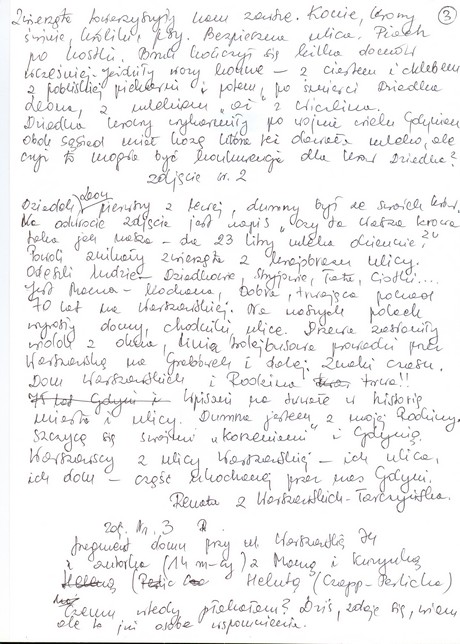 3
Zwierzęta towarzyszyły nam zawsze. Konie, krowy
świnie, króliki, psy. Bezpieczna ulica. Piach
po kostki. Bruk kończył się kilka domów
wcześniej. Jeździły wozy konne – z ciastem i chlebem
z pobliskiej piekarni i potem, po śmierci Dziadka
Leona, z mlekiem "aż" z Wiczlina.
Dziadka krowy wykarmiły po wojnie wielu Gdynian
obok sąsiad miał kozę która też dawała mleko, ale
czyż to mogła być konkurencja dla krów Dziadka?
Zdjęcie nr. 2
Dziadek Leon pierwszy z lewej, dumny był ze swoich krów.
Na odwrocie zdjęcia jest napis "czy ta Wasza krowa
taka jak nasza – da 23 litry mleka dziennie?"
Powoli znikały zwierzęta z krajobrazu ulicy.
Odeszli ludzie – Dziadkowie, Stryjowie, Tata, Ciotki....
Jest Mama – kochana, dobra, trwająca ponad
70 lat na Warszawskiej. Na naszych polach
wyrosły domy, chodniki, ulice. Drzewa zasłoniły
widok z okna, linia trolejbusowa prowadzi przez
Warszawską na Grabówek i dalej. Znaki czasu.
Dom Warszawskich i Rodzina trwa!!
75 lat Gdyni i wpisani na trwałe w historię
miasta i ulicy. Dumna jestem z mojej Rodziny.
Szczycę się swoimi "korzeniami" i Gdynią.
Warszawscy z ulicy Warszawskiej – ich ulica,
ich dom – część ukochanej przez nas Gdyni.
Renata z Warszawskich - Tarczyńska.
Zdj. Nr. 3
fragment domu przy ul. Warszawskiej 74
i autorka (14 m-cy) z Mamą i Kuzynką
Heleną Helutą (Czapp-Perlicka)
Czemu wtedy płakałam? Dziś, zdaje się, wiem
ale to już osobne wspomnienie.